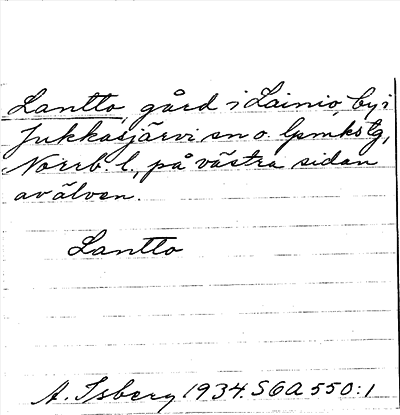 Lantto, gård i Lainio, by i
Jukkasjärvi sn o. lpmkstg,
Norrb. l., på västra sidan
av älven.
Lantto
A. Isberg 1934. SOA 550:1